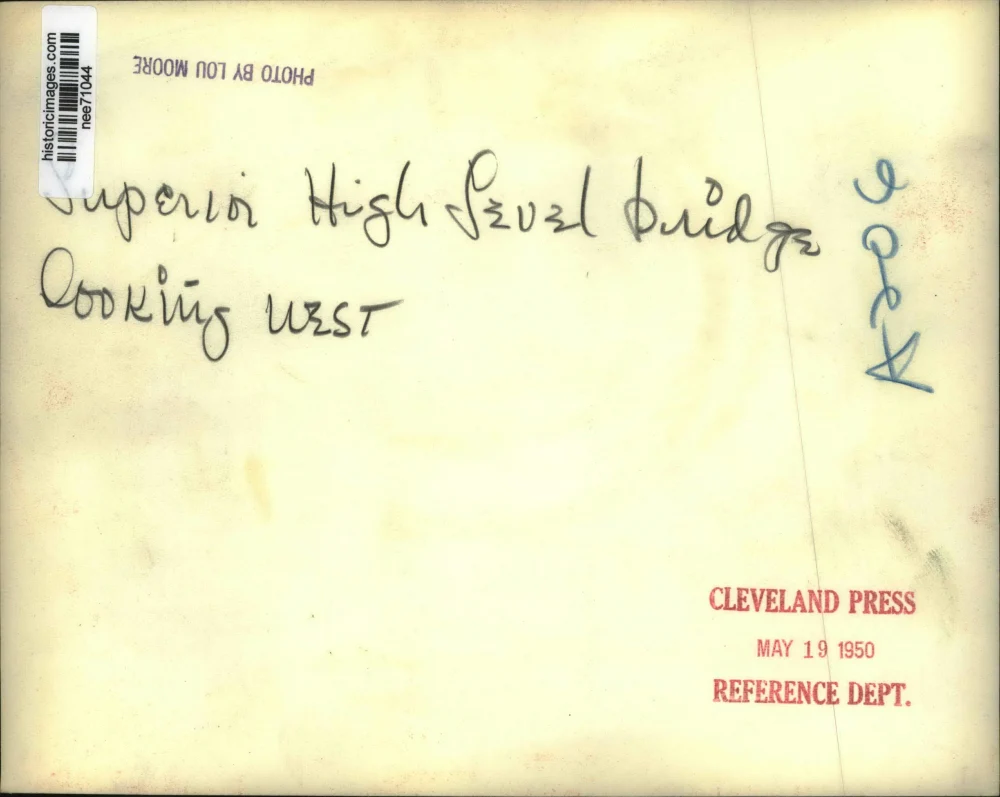 historicimages.com
nee71044
PHOTO BY LOU MOORE
Superior High Level bridge
looking WEST
CLEVELAND PRESS
MAY 19 1950
REFERENCE DEPT.